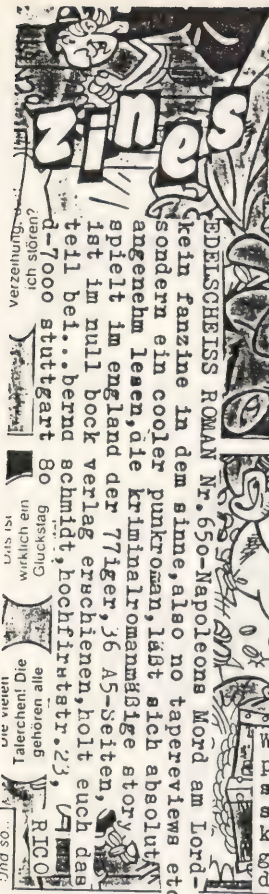 zines
EDELSCHEISS ROMAN Nr.65o-Napoleons Mord am Lord-
kein fanzine in dem sinne,also no tapereviews et
sondern ein cooler punkroman,läßt sich absolut
angenehm lesen,die kriminalromanmäßige story
spielt im england der 77iger,36 A5-Seiten,
ist im null bock verlag erschienen,holt euch das
teil bei...bernd schmidt,hochfirststr.23,
d-7ooo stuttgart 8o
RICO
Verzeihung,
ich stören?
Das ist
wirklich ein
Glückstag
Die vielen
Talerchen! Die
gehören alle
Und so..